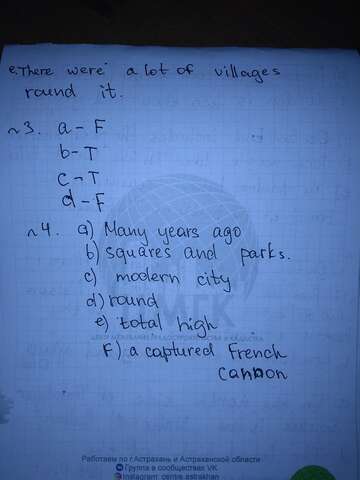 e. There were a lot of villages
round it.
~3. a - F
b - T
c - T
d - F
~4. a) Many years ago
b) squares and parks.
c) modern city
d) round
e) total high
F) a captured French
cannon
Работаем по г.Астрахань и Астраханской области
Группа в сообществах VK
Instagram: centre.astrakhan